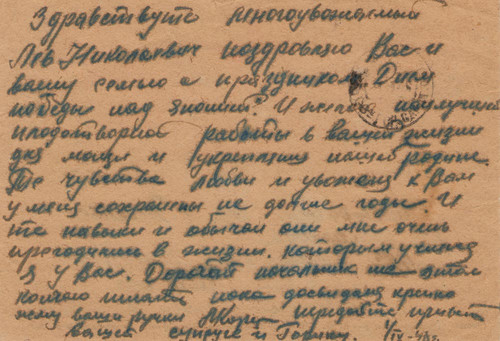 Здравствуйте многоуважаемый
Лев Николаевич поздровляю Вас и
вашу семью с праздником Днем
победы над Японии? И желаю наилучший
плодотворной работы в вашей жизни
для мощи и укрепления нашей родине.
Те чувства любви и уважения к Вам
у меня сохранены на долгие годы и
те навыки и обычаи они мне очень
пригодились в жизни. которым учился
я у Вас. Дорогой начальник на этом
кончаю писать пока досвидания крепко
жму ваши ручки передайте привет
вашей супруге и